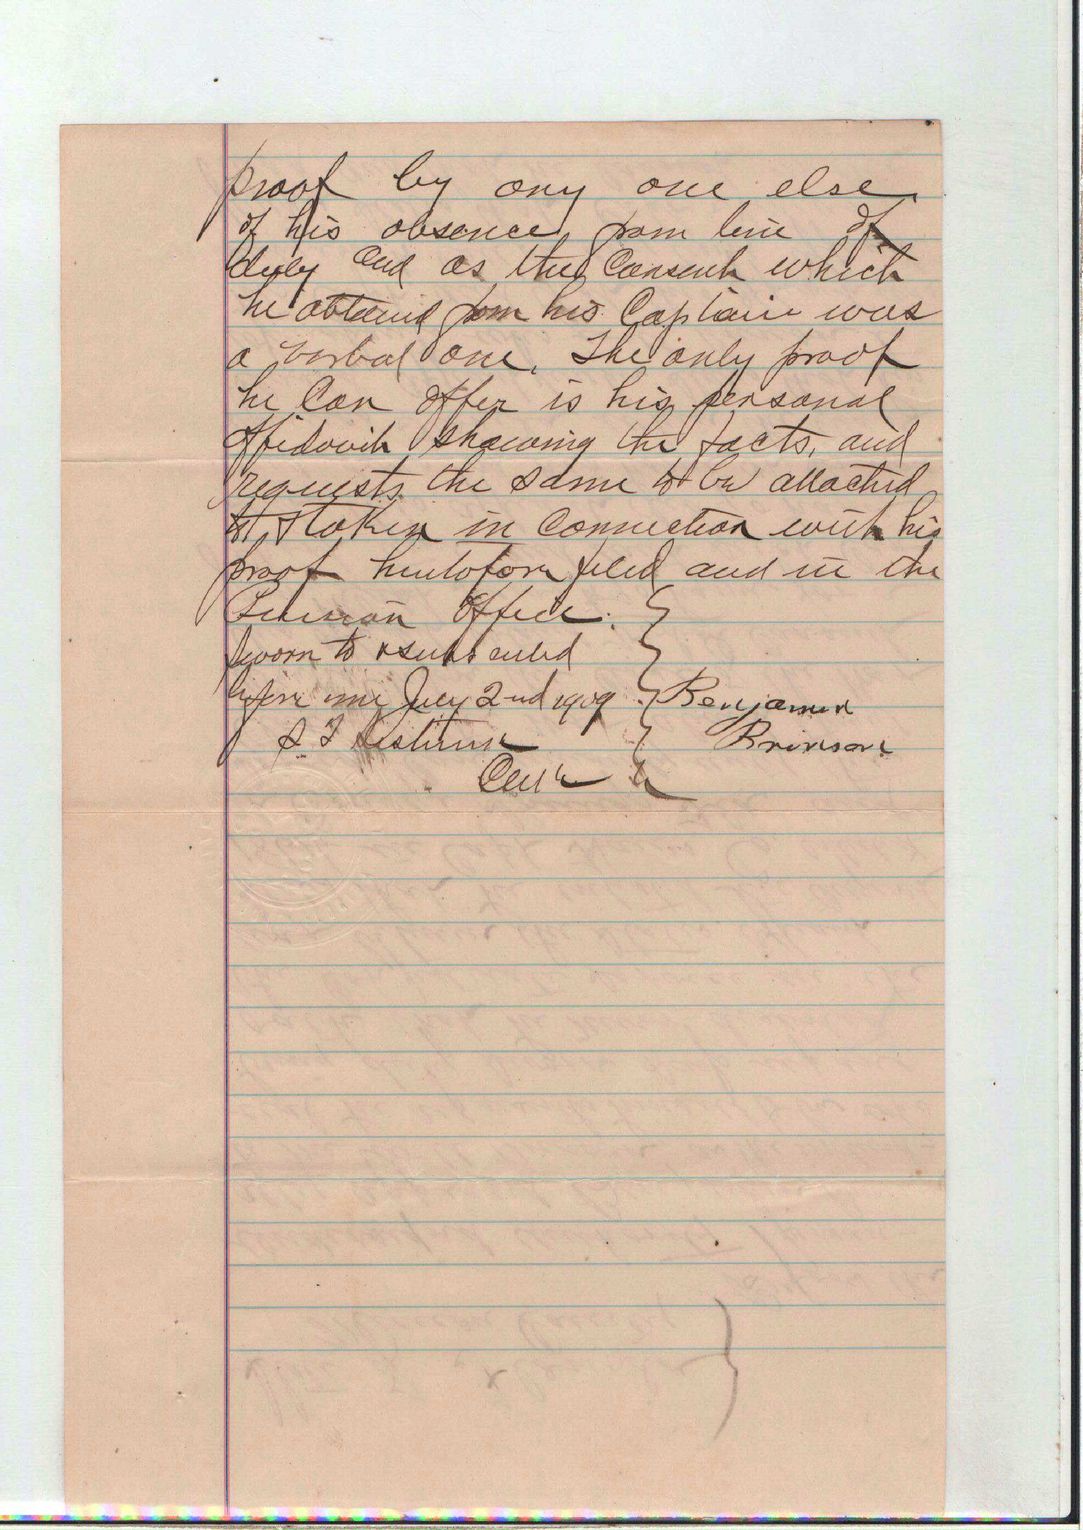 proof by any one else
of his absence from line of
duty and as the Consent which
he obtained from his Captain was
a verbal one. The only proof
he Can offer is his personal
affidavit showing the facts, and
requests the same to be attached
& taken in Connection with his
proof heretofore filed and in the
Pension Office.
Sworn to & subscribed
before me July 2nd 1909 Benjamin
S. F. Brinson
Clerk